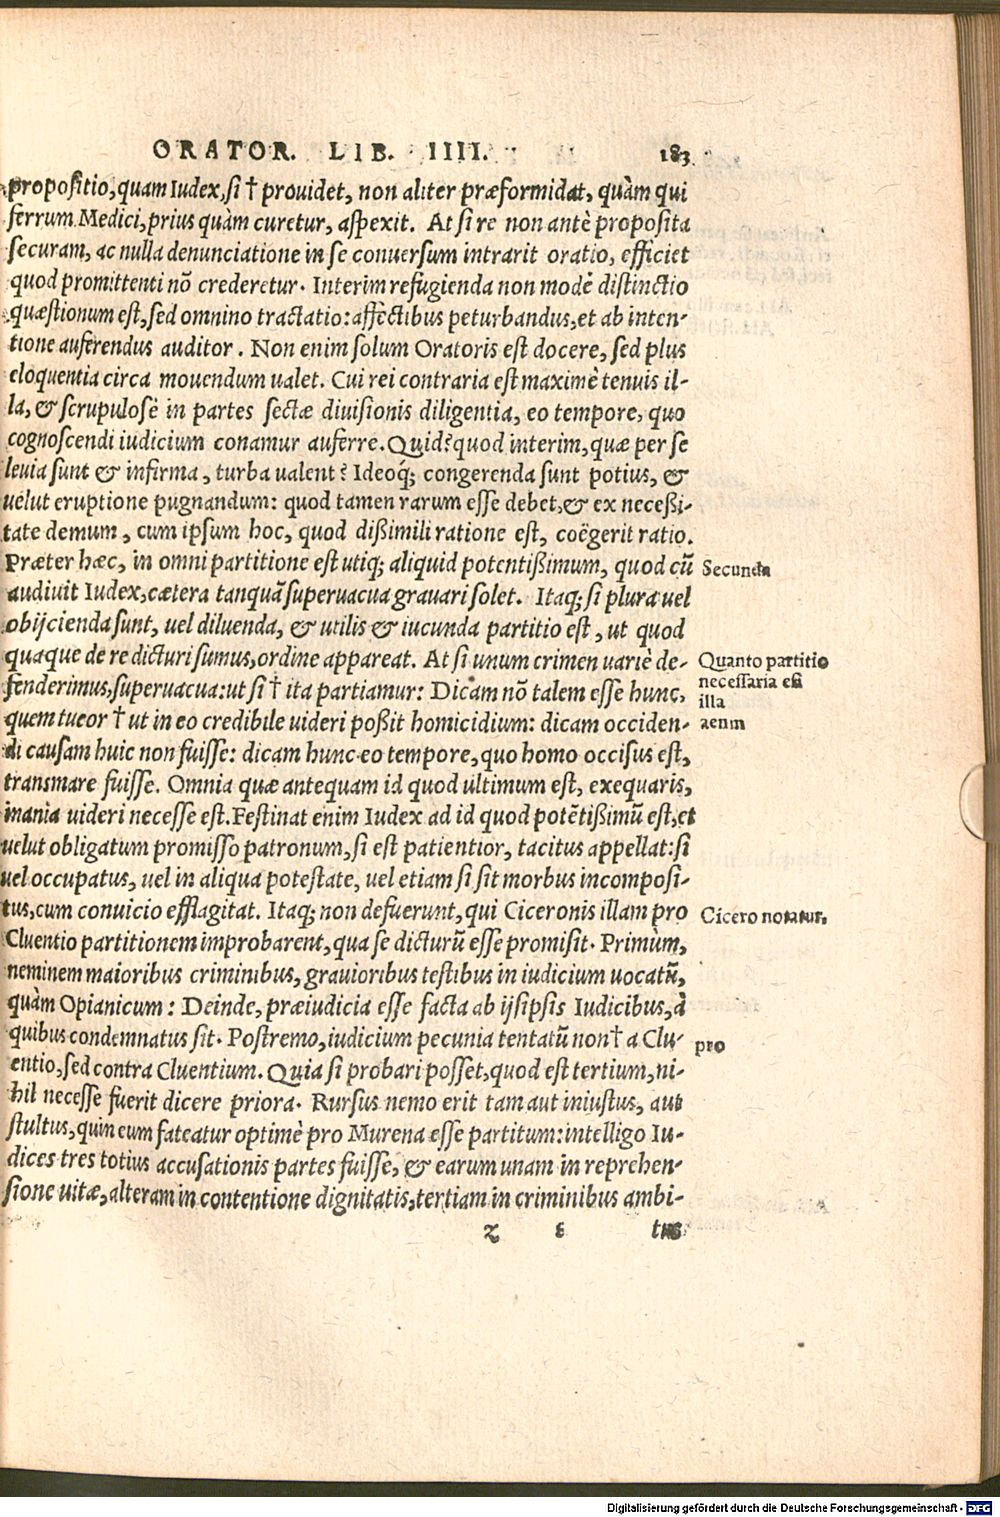 ORATOR. LIB. IIII. 183
propositio, quam Iudex, si † prouidet, non aliter præformidat, quàm qui
ferrum Medici, prius quàm curetur, aspexit. At si re non antè proposita
securam, ac nulla denunciatione in se conuersum intrarit oratio, efficiet
quod promittenti nō crederetur. Interim refugienda non modè distinctio
quæstionum est, sed omnino tractatio: affectibus peturbandus, et ab inten-
tione auferendus auditor. Non enim solum Oratoris est docere, sed plus
eloquentia circa mouendum ualet. Cui rei contraria est maximè tenuis il-
la, & scrupulosè in partes sectæ diuisionis diligentia, eo tempore, quo
cognoscendi iudicium conamur auferre. Quid? quod interim, quæ per se
leuia sunt & infirma, turba ualent? Ideoq́; congerenda sunt potius, &
uelut eruptione pugnandum: quod tamen rarum esse debet, & ex necessi-
tate demum, cum ipsum hoc, quod dißimili ratione est, coëgerit ratio.
Præter hæc, in omni partitione est utiq; aliquid potentißimum, quod cū
Secunda
audiuit Iudex, cætera tanquā superuacua grauari solet. Itaq; si plura uel
obijcienda sunt, uel diluenda, & utilis & iucunda partitio est, ut quod
quaque de re dicturi sumus, ordine appareat. At si unum crimen uariè de-
Quanto partitio
necessaria est
fenderimus, superuacua: ut si † ita partiamur: Dicam nō talem esse hunc,
illa
quem tueor † ut in eo credibile uideri poßit homicidium: dicam occiden-
aenim
di causam huic non fuisse: dicam hunc eo tempore, quo homo occisus est,
transmare fuisse. Omnia quæ antequam id quod ultimum est, exequaris,
inania uideri necesse est. Festinat enim Iudex ad id quod potētißimū est, et
uelut obligatum promisso patronum, si est patientior, tacitus appellat: si
uel occupatus, uel in aliqua potestate, uel etiam si sit morbus incomposi-
tus, cum conuicio efflagitat. Itaq; non defuerunt, qui Ciceronis illam pro
Cicero notatur.
Cluentio partitionem improbarent, qua se dicturū esse promisit. Primùm,
neminem maioribus criminibus, grauioribus testibus in iudicium uocatū,
quàm Opianicum: Deinde, præiudicia esse facta ab ijsipsis Iudicibus, à
quibus condemnatus sit. Postremo, iudicium pecunia tentatū non † a Clu-
pro
entio, sed contra Cluentium. Quia si probari posset, quod est tertium, ni-
hil necesse fuerit dicere priora. Rursus nemo erit tam aut iniustus, aut
stultus, quin eum fateatur optimè pro Murena esse partitum: intelligo Iu-
dices tres totius accusationis partes fuisse, & earum unam in reprehen-
sione uitæ, alteram in contentione dignitatis, tertiam in criminibus ambi-
z tus
Digitalisierung gefördert durch die Deutsche Forschungsgemeinschaft - DFG